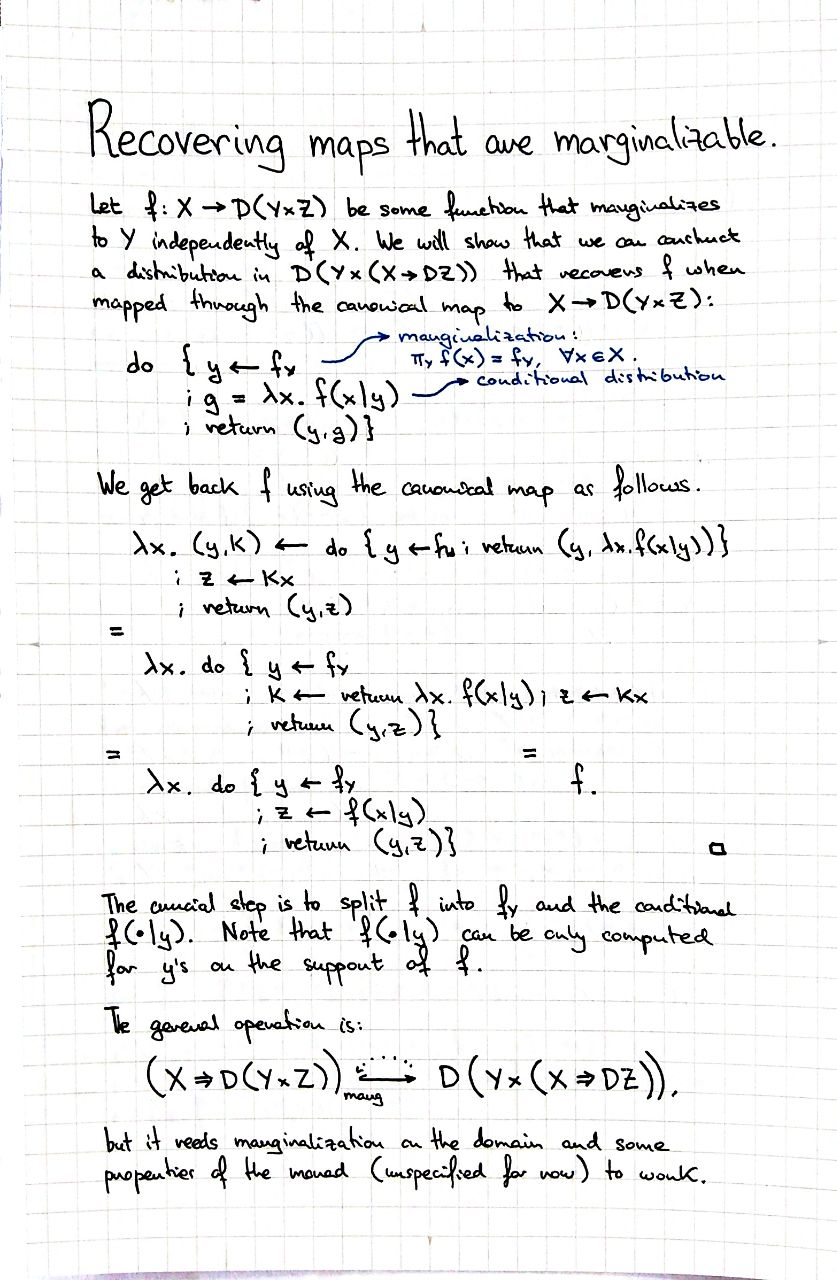 Recovering maps that are marginalizable.
Let f: X → D(Y×Z) be some function that marginalizes
to Y independently of X. We will show that we can construct
a distribution in D(Y×(X→DZ)) that recovers f when
mapped through the canonical map to X→D(Y×Z):
marginalization:
do { y ← fʏ
πʏ f(x) = fʏ, ∀x∈X.
conditional distribution
; g = λx. f(x|y)
; return (y,g)}
We get back f using the canonical map as follows.
λx. (y,k) ← do { y ← fʏ; return (y, λx.f(x|y))}
; z ← kx
; return (y,z)
=
λx. do { y ← fʏ
; k ← return λx. f(x|y); z ← kx
; return (y,z)}
= =
λx. do { y ← fʏ f.
; z ← f(x|y)
; return (y,z)} □
The crucial step is to split f into fʏ and the conditional
f(•|y). Note that f(•|y) can be only computed
for y's on the support of f.
The general operation is:
(X⇒D(Y×Z)) ⇠→ D(Y×(X⇒DZ)),
marg
but it needs marginalization on the domain and some
properties of the monad (unspecified for now) to work.